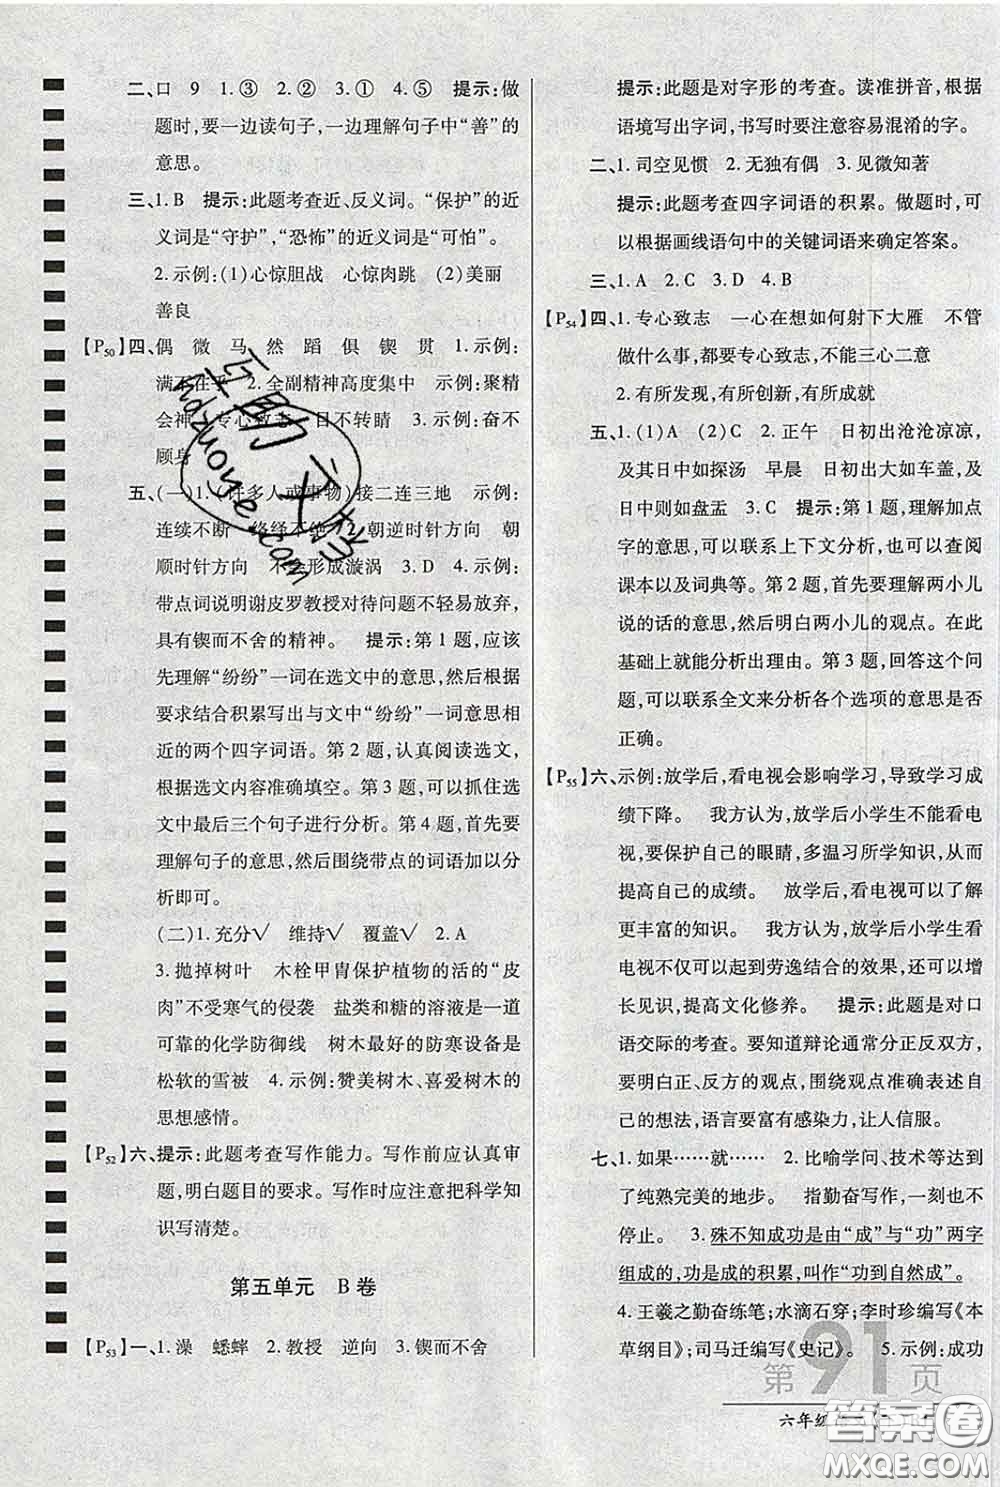 二、口 9 1.③ 2.② 3.① 4.⑤ 提示:做
题时,要一边读句子,一边理解句子中“善”的
意思。
三、1.B 提示:此题考查近、反义词。“保护”的近
义词是“守护”,“恐怖”的近义词是“可怕”。
2.示例:(1)心惊胆战 心惊肉跳 (2)美丽
善良
【P50】四、偶 微 马 然 蹈 俱 锲 贯 1.示例:
满不在乎 2.全副精神高度集中 示例:聚精
会神 专心致志 目不转睛 3.示例:奋不
顾身
五、(一)1.(许多人或事物)接二连三地 示例:
连续不断 络绎不绝 2.朝逆时针方向 朝
顺时针方向 不会形成漩涡 3.D 4.示例:
带点词说明谢皮罗教授对待问题不轻易放弃,
具有锲而不舍的精神。 提示:第1题,应该
先理解“纷纷”一词在选文中的意思,然后根据
要求结合积累写出与文中“纷纷”一词意思相
近的两个四字词语。第2题,认真阅读选文,
根据选文内容准确填空。第3题,可以抓住选
文中最后三个句子进行分析。第4题,首先要
理解句子的意思,然后围绕带点的词语加以分
析即可。
(二)1.充分√ 维持√ 覆盖√ 2.A
3.抛掉树叶 木栓甲胄保护植物的活的“皮
肉”不受寒气的侵袭 盐类和糖的溶液是一道
可靠的化学防御线 树木最好的防寒设备是
松软的雪被 4.示例:赞美树木、喜爱树木的
思想感情。
【P52】六、提示:此题考查写作能力。写作前应认真审
题,明白题目的要求。写作时应注意把科学知
识写清楚。
第五单元 B卷
【P53】一、1.澡 蟋蟀 2.教授 逆向 3.锲而不舍
提示:此题是对字形的考查。读准拼音,根据
语境写出字词,书写时要注意容易混淆的字。
二、1.司空见惯 2.无独有偶 3.见微知著
提示:此题考查四字词语的积累。做题时,可
以根据画线语句中的关键词语来确定答案。
三、1.A 2.C 3.D 4.B
【P54】四、1.专心致志 一心在想如何射下大雁 不管
做什么事,都要专心致志,不能三心二意
2.有所发现,有所创新,有所成就
五、1.(1)A (2)C 2.正午 日初出沧沧凉凉,
及其日中如探汤 早晨 日初出大如车盖,及
日中则如盘盂 3.C 提示:第1题,理解加点
字的意思,可以联系上下文分析,也可以查阅
课本以及词典等。第2题,首先要理解两小儿
说的话的意思,然后明白两小儿的观点。在此
基础上就能分析出理由。第3题,回答这个问
题,可以联系全文来分析各个选项的意思是否
正确。
【P55】六、示例:放学后,看电视会影响学习,导致学习成
绩下降。 我方认为,放学后小学生不能看电
视,要保护自己的眼睛,多温习所学知识,从而
提高自己的成绩。 放学后,看电视可以了解
更丰富的知识。 我方认为,放学后小学生看
电视不仅可以起到劳逸结合的效果,还可以增
长见识,提高文化修养。 提示:此题是对口
语交际的考查。要知道辩论通常分正反双方,
要明白正、反方的观点,围绕观点准确表述自己
的想法,语言要富有感染力,让人信服。
七、1.如果……就…… 2.比喻学问、技术等达到
了纯熟完美的地步。 指勤奋写作,一刻也不
停止。 3.殊不知成功是由“成”与“功”两字
组成的,功是成的积累,叫作“功到自然成”。
4.王羲之勤奋练笔;水滴石穿;李时珍编写《本
草纲目》;司马迁编写《史记》。 5.示例:成功
第91页
六年级
答案圈
MXQE.COM
互助文档
hdzuoye.com